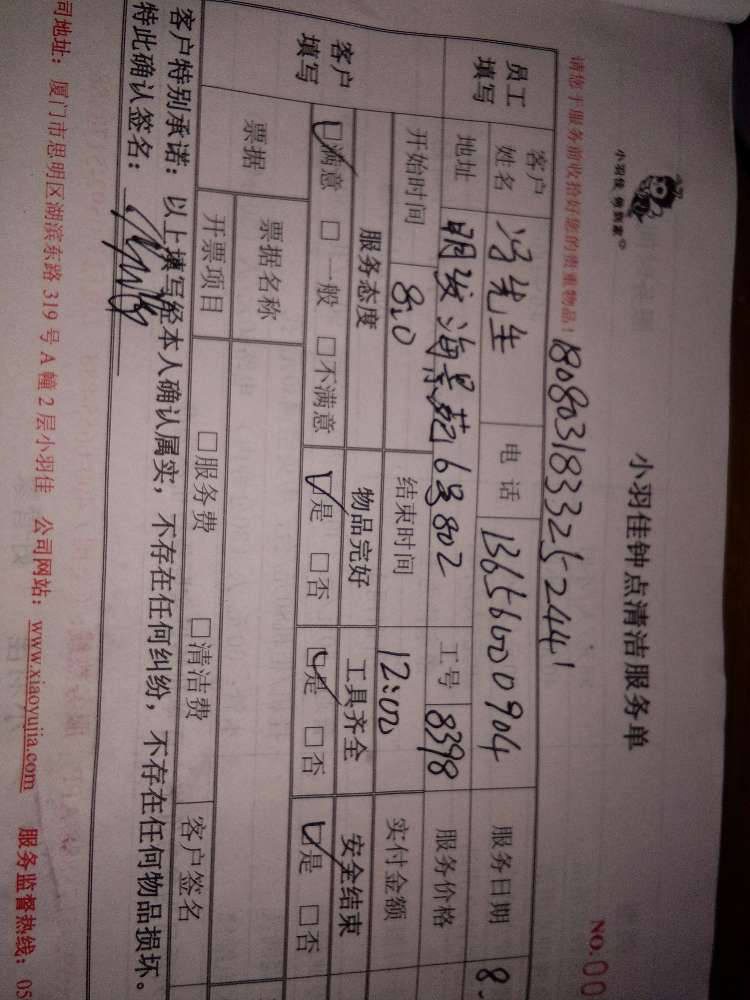 小羽佳 帮到家
小羽佳钟点清洁服务单
NO.00
请您于服务前收拾好您的贵重物品！
180803183325244
员工填写
客户姓名 冯先生 电话 13656000904 服务日期 8.
地址 明发海景苑6号802 工号 8398 服务价格
开始时间 8:0 结束时间 12:00 实付金额
客户填写
服务态度 物品完好 工具齐全 安全结束
☑满意 □一般 □不满意 ☑是 □否 ☑是 □否 ☑是 □否
票据 票据名称
开票项目 □服务费 □清洁费 客户签名
客户特别承诺：以上填写经本人确认属实，不存在任何纠纷，不存在任何物品损坏。
特此确认签名：
司地址：厦门市思明区湖滨东路319号A幢2层小羽佳 公司网站：www.xiaoyujia.com 服务监督热线：05